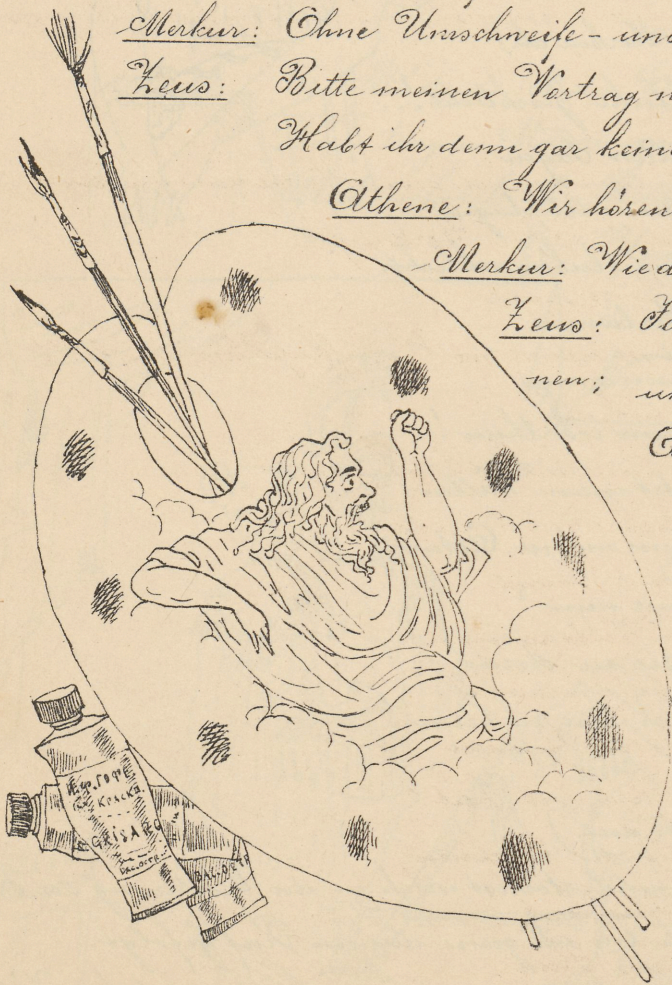 Merkur: Ohne Umschweife - und
Zeus: Bitte meinen Vortrag n
Habt ihr denn gar kein
Athene: Wir hören
Merkur: Wie
Zeus:
nen;
КРАСКА.
GRISAR
ВАС.ОСТР.